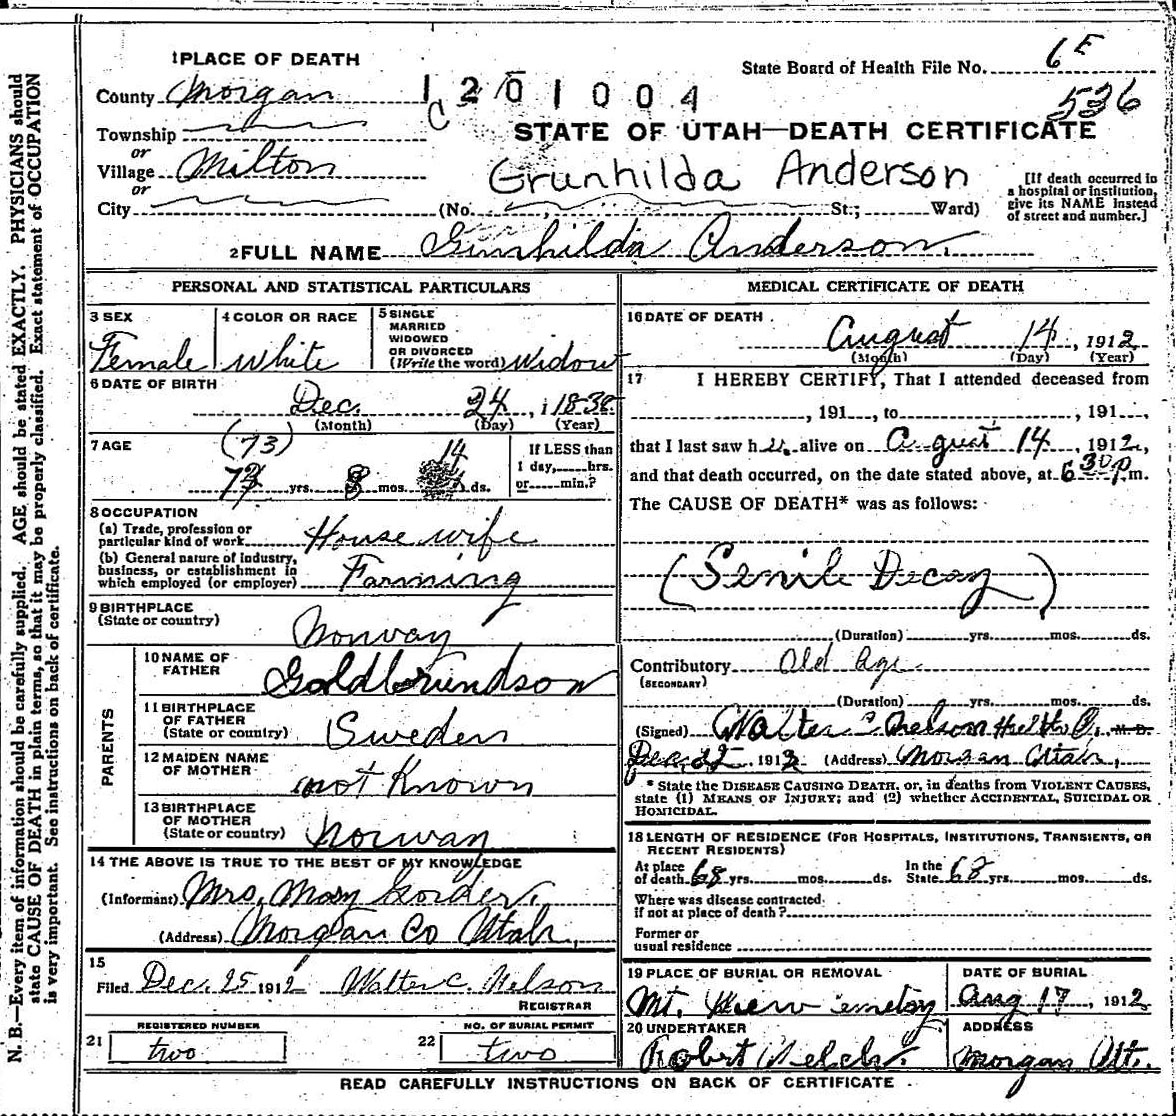 1 PLACE OF DEATH
County Morgan
Township
or
Village Milton
or
City
(No. St.; Ward)
1 2 0 1 0 0 4
C
State Board of Health File No. 6 E
536
STATE OF UTAH—DEATH CERTIFICATE
Grunhilda Anderson
[If death occurred in
a hospital or institution,
give its NAME instead
of street and number.]
2 FULL NAME Gunhilda Anderson.
PERSONAL AND STATISTICAL PARTICULARS
3 SEX
Female
4 COLOR OR RACE
White
5 SINGLE
MARRIED
WIDOWED
OR DIVORCED
(Write the word) Widow
6 DATE OF BIRTH
Dec. 24, 1838
(Month) (Day) (Year)
7 AGE
(73)
14
yrs. 8 mos. ds.
If LESS than
1 day, hrs.
or min.?
8 OCCUPATION
(a) Trade, profession or
particular kind of work House wife
(b) General nature of industry,
business, or establishment in
which employed (or employer) Farming
9 BIRTHPLACE
(State or country)
Norway
PARENTS
10 NAME OF
FATHER
Goldbrundson
11 BIRTHPLACE
OF FATHER
(State or country) Sweden
12 MAIDEN NAME
OF MOTHER
not Known
13 BIRTHPLACE
OF MOTHER
(State or country) Norway
14 THE ABOVE IS TRUE TO THE BEST OF MY KNOWLEDGE
(Informant) Mrs. Mary
(Address) Morgan Co Utah,
15
Filed Dec. 25 1912 Walter C. Nelson
REGISTRAR
REGISTERED NUMBER
21 two
NO. OF BURIAL PERMIT
22 two
MEDICAL CERTIFICATE OF DEATH
16 DATE OF DEATH
August 14, 1912
(Month) (Day) (Year)
17 I HEREBY CERTIFY, That I attended deceased from
, 191 , to , 191 ,
that I last saw her alive on August 14, 1912,
and that death occurred, on the date stated above, at 6 30 p.m.
The CAUSE OF DEATH* was as follows:
(Senile Decay)
(Duration) yrs. mos. ds.
Contributory Old Age
(SECONDARY)
(Duration) yrs. mos. ds.
(Signed) Walter C. Nelson M. D.
Dec. 25 1912 (Address) Morgan Utah,
* State the DISEASE CAUSING DEATH, or, in deaths from VIOLENT CAUSES,
state (1) MEANS OF INJURY; and (2) whether ACCIDENTAL, SUICIDAL OR
HOMICIDAL.
18 LENGTH OF RESIDENCE (FOR HOSPITALS, INSTITUTIONS, TRANSIENTS, OR
RECENT RESIDENTS)
At place
of death 68 yrs. mos. ds.
In the
State 68 yrs. mos. ds.
Where was disease contracted
If not at place of death?
Former or
usual residence
19 PLACE OF BURIAL OR REMOVAL
Mt. View Cemetery
DATE OF BURIAL
Aug 17, 1912
20 UNDERTAKER
Robert Welch.
ADDRESS
Morgan Ut.
READ CAREFULLY INSTRUCTIONS ON BACK OF CERTIFICATE
N. B.—Every item of information should be carefully supplied. AGE should be stated EXACTLY. PHYSICIANS should
state CAUSE OF DEATH in plain terms, so that it may be properly classified. Exact statement of OCCUPATION
is very important. See instructions on back of certificate.